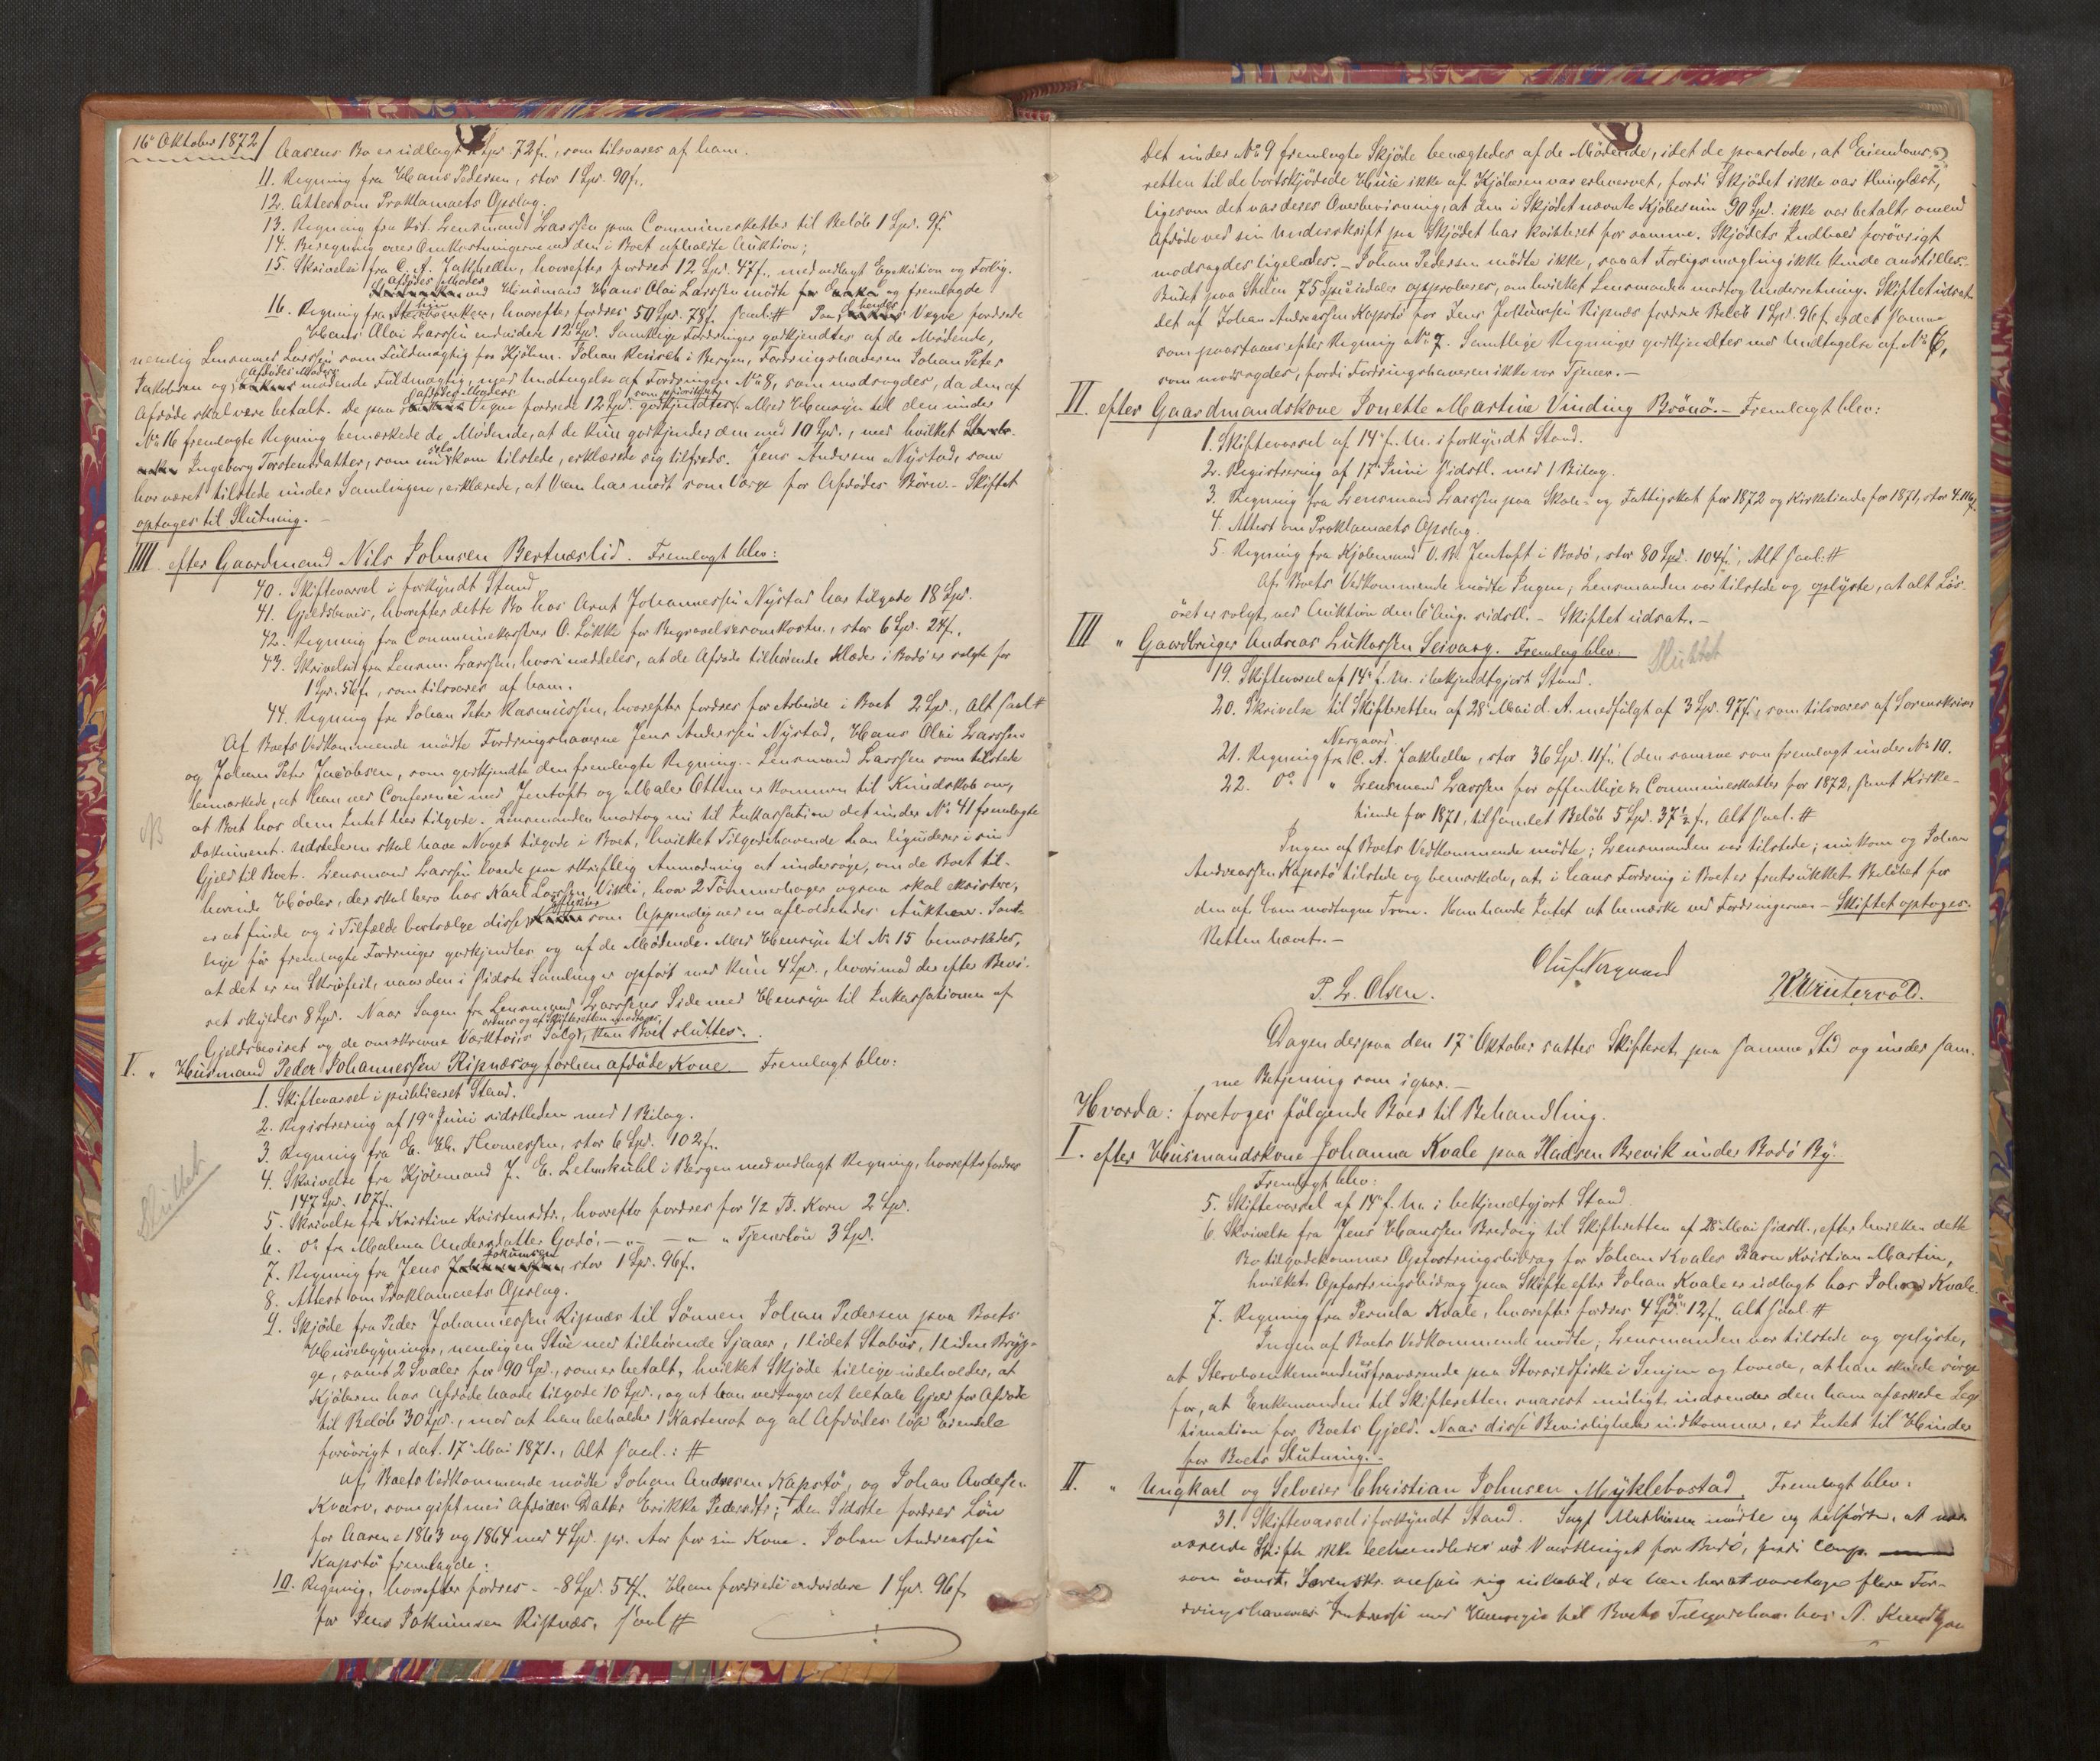 16de Oktober 1872/
Aasens Bo er udlagt Spd. 72 f., som tilsvares af ham.
11. Regning fra Hans Pedersen, stor 1 Spd. 90 f.,
12. Attest om Proklamaets Opslag.
13. Regning fra Kst. Lensmand Larssen paa Communeskatter til Beløb 1 Spd. 9 f.
14. Beregning over Omkostningerne ved den i Boet afholdte Auktion;
15. Skrivelse fra C. A. Jakhelln, hvorefter fordres 12 Spd. 47 f., med vedlagt Exekution og Forlig.
Afdødes Moder
ved Husmand Hans Olai Larssen mødte og fremlagde
16. Regning fra hvorefter fordres 50 Spd. 78 f. saal: # Paa hendes Vegne fordrede
Hans Olai Larssen endvidere 12 Spd. Samtlige Fordringer godkjendtes af de Mødende,
nemlig Lensmand Larssen som Fuldmægtig for Kjøbm. Johan Reusch i Bergen, Fordringshaveren Johan Peter
Jakobsen og Afdødes Moders mødende Fuldmægtig, med Undtagelse af Fordringen No 8, som modsagdes, da den af
Afdøde skal være betalt. De paa Afdødes Moders Vegne fordrede 12 Spd. godkjendtes som prioriteret. Med Hensyn til den under
No 16 fremlagte Regning bemærkede de Mødende, at de kun godkjender den med 10 Spd., med hvilket
Ingeborg Torstensdatter, som nu selv kom tilstede, erklærede sig tilfreds. Jens Andersen Nystad, som
har været tilstede under Samlingen, erklærede, at han har mødt som Værge for Afdødes Børn. - Skiftet
optages til Slutning. -
IIII. efter Gaardmand Nils Johnsen Bertnæslid. Fremlagt blev:
40. Skiftevarsel i forkyndt Stand
41. Gjeldsbevis, hvorefter dette Bo hos Arnt Johannessen Nystad har tilgode 18 Spd.
42. Regning fra Communekasserer O. Løkke for Begravelsesomkostn., stor 6 Spd. 24 f.,
43. Skrivelse fra Lensm. Larssen, hvori meddeles, at de Afdøde tilhørende Klæder i Bodø er solgte for
1 Spd. 56 f., som tilsvares af ham.
44. Regning fra Johan Peter Rasmussen, hvorefter fordres for Arbeide i Boet 2 Spd., Alt saal #
Af Boets Vedkommende mødte Fordringshaverne Jens Anderssen Nystad, Hans Olai Larssen
og Johan Peter Jacobsen, som godkjendte den fremlagte Regning. - Lensmand Larssen som tilstede
bemærkede, at han ved Conference med Jentoft og Maler Ottem er kommen til Kundskab om,
at Boet hos dem Intet har tilgode. Lensmanden modtog nu til Inkassation det under No 41 fremlagte
NB
Dokument. Udstederen skal have Noget tilgode i Boet, hvilket Tilgodehavende han liquiderer i sin
Gjeld til Boet. Lensmand Larssen lovede paa skriftlig Anmodning at undersøge, om de Boet til-
hørende Høvler, der skal bero hos Karl Larssen Viken, hvor 2 Tømmerhager ogsaa skal existere,
er at finde og i Tilfælde bortsælge disse Effekter som Appendix ved en afholdendes Auktion. Samt-
lige før fremlagte Fordringer godkjendtes og af de Mødende. Med Hensyn til No 15 bemærkedes,
at det er en Skrivfeil, naar den i sidste Samling er opført med kun 4 Spd., hvorimod der efter Bevi-
set skyldes 8 Spd. Naar Sagen fra Lensmand Larssens Side med Hensyn til Inkassationen af
ordnes og af Skifteretten modtages,
Gjeldsbeviset og de omskrevne Værktøiers Salg, kan Boet sluttes. -
V. " Husmand Peder Johannessen Ripnæs og forhen afdøde Kone. Fremlagt blev:
1. Skiftevarsel i publiceret Stand.
2. Registrering af 19de Juni sidstleden med 1 Bilag.
3. Regning fra E. H. Thomessen, stor 6 Spd. 102 f.
Sluttet
4. Skrivelse fra Kjøbmand J. E. Lehmkuhl i Bergen med vedlagt Regning, hvorefter fordres
147 Spd. 107 f.
5. Skrivelse fra Kristine Kristensdtr., hvorefter fordres for 1/2 Td. Korn 2 Spd.
6. Do fra Malena Andersdatter Godø, - " - - " - " Tjenerløn 3 Spd.
7. Regning fra Jens Jokumsen, stor 1 Spd. 96 f.
8. Attest om Proklamaets Opslag.
9. Skjøde fra Peder Johannessen Ripnæs til Sønnen Johan Pedersen paa Boets
Husebygninger, nemlig en Stue med tilhørende Sjaaer, 1 lidet Stabur, 1 liden Bryg-
ge, samt 2 Svaler for 90 Spd., som er betalt, hvilket Skjøde tillige indeholder, at
Kjøberen hos Afdøde havde tilgode 10 Spd., og at han vedtager at betale Gjeld for Afdøde
til Beløb 30 Spd., mod at han beholder 1 Kastenot og al Afdødes løse Eiendele
forøvrigt, dat. 17de Mai 1871., Alt saal.: #
Af Boets Vedkommende mødte Johan Andresen Kapstø, og Johan Andersen
Kvarv, som gift med Afdødes Datter Erikka Pedersdtr; den Sidste fordrer Løn
for Aarene 1863 og 1864 med 4 Spd. pr. Aar for sin Kone. Johan Andreassen
Kapstø fremlagde:
10. Regning, hvorefter fordres - 8 Spd. 54 f. Han fordrede endvidere 1 Spd. 96 f.
for Jens Jokumsen Ripnæs. saal #
Det under No 9 fremlagte Skjøde benægtedes af de Mødende, idet de paastode, at Eiendoms-
retten til de bortskjødede Huse ikke af Kjøberen var erhvervet, fordi Skjødet ikke var thinglæst,
ligesom det var deres Overbevisning, at den i Skjødet nævnte Kjøbesum 90 Spd. ikke var betalt, omend
Afdøde ved sin Underskrift paa Skjødet har kvitteret for samme. Skjødets Indhold forøvrigt
modsagdes ligeledes. - Johan Pedersen mødte ikke, saaat Forligsmægling ikke kunde anstilles. -
Budet paa Stuen 75 Speciedaler approberes, om hvilket Lensmanden modtog Underretning. Skiftet udsat.
Det af Johan Andreassen Kapstø for Jens Jokumsen Ripnæs fordrede Beløb 1 Spd. 96 f. er det samme
som paastaaes efter Regning No 7. Samtlige Regninger godkjendtes med Undtagelse af No 6,
som modsagdes, fordi Fordringshaveren ikke var Tjener. -
II. efter Gaardmandskone Jonette Martine Vinding Brønø. - Fremlagt blev:
1. Skiftevarsel af 14de f. M. i forkyndt Stand.
2. Registrering af 17de Juni sidstl. med 1 Bilag.
3. Regning fra Lensmand Larssen paa Skole- og Fattigskat for 1872 og Kirketiende for 1871, stor 4. 116 f.
4. Attest om Proklamaets Opslag.
5. Regning fra Kjøbmand V. B. Jentoft i Bodø, stor 80 Spd. 104 f., Alt saal: #
Af Boets Vedkommende mødte Ingen; Lensmanden var tilstede og oplyste, at alt Løs-
øret er solgt ved Auktion den 6te Aug. sidstl. - Skiftet udsat. -
III " Gaardbruger Andreas Lukassen Seivaag. Fremlagt blev:
Sluttet
19. Skiftevarsel af 14de f. M. i bekjendtgjort Stand.
20. Skrivelse til Skifteretten af 28de Mai d. A. medfulgt af 3 Spd. 97 f., som tilsvares af Sorenskriver
Nergaard.
21. Regning fra C. A. Jakhelln, stor 36 Spd. 11 f., (den samme som fremlagt under No 10.
22. Do " Lensmand Larssen for offentlige & Communeskatter for 1872, samt Kirke-
tiende for 1871, tilsamlet Beløb 5 Spd. 37 1/2 f., Alt saal. #
Ingen af Boets Vedkommende mødte; Lensmanden var tilstede; nu kom og Johan
Andreassen Kapstø tilstede og bemærkede, at i hans Fordring i Boet er fratrukket Beløbet for
den af ham modtagne Tran. Han havde Intet at bemærke ved Fordringerne. - Skiftet optages.
Retten hævet. -
Oluf Nergaard
P. L. Olsen.
K Wintervold.
Dagen derpaa den 17de Oktober sattes Skifteret paa samme Sted og under sam-
me Betjening som igaar. -
Hvorda: foretoges følgende Boer til Behandling.
I. efter Husmandskone Johanna Kvale paa Pladsen Brevik under Bodø By.
Fremlagt blev:
5. Skiftevarsel af 14de f. M. i bekjendtgjort Stand
6. Skrivelse fra Jens Hanssen Bredvig til Skifteretten af 28de Mai sidstl., efter hvilken dette
Bo tilgodekommer Opfostringsbidrag for Johan Kvales Barn Kristian Martin,
hvilket Opfostringsbidrag paa Skifte efter Johan Kvale er udlagt hos Johan Kvale.
7. Regning fra Pernela Kvale, hvorefter fordres 4 Spd. 12 f., Alt saal. #
Ingen af Boets Vedkommende mødte; Lensmanden var tilstede og oplyste,
at Stervboenkemanden er fraværende paa Storsildfiske i Senjen og lovede, at han skulde sørge
for, at Enkemanden til Skifteretten snarest muligt indsender den ham afæskede Legi-
timation for Boets Gjeld. Naar disse Bevisligheder indkommer, er Intet til Hinder
for Boets Slutning. -
II. " Ungkarl og Selveier Christian Johnsen Myklebostad. Fremlagt blev:
31. Skiftevarsel i forkyndt Stand. Sagf. Mathiesen mødte og tilførte, at nær-
værende Skifte ikke behandledes ved Vaarthinget for Bodø, fordi Comp.
som const. Sorenskr. ansaa sig inhabil, da han har at varetage flere For-
dringshaveres Interesse med Hensyn til Boets Tilgodehav. hos N. Knudtzon